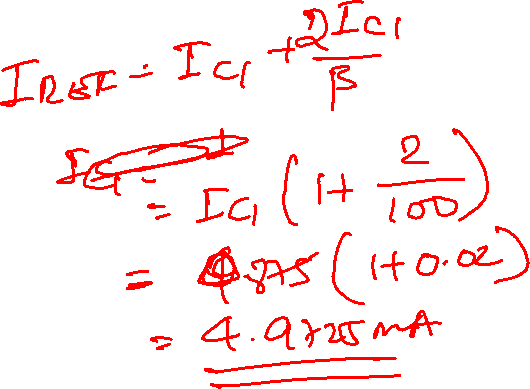 I_REF = I_C1 + 2I_C1/β
= I_C1 (1 + 2/100)
= 4.875 (1+0.02)
= 4.9725 mA